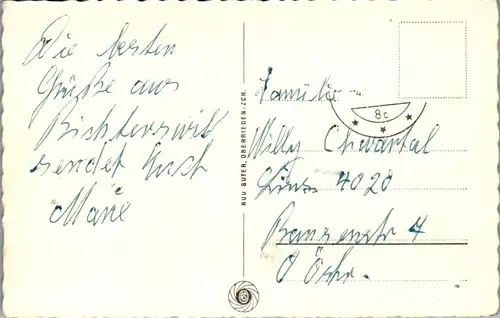 Die besten
Grüße aus
Richterswil
sendet Euch
Marie
RUD. SUTER, OBERRIEDEN-ZCH.
Familie
8c
Willy Chwartal
Linz 4020
4
Östr.